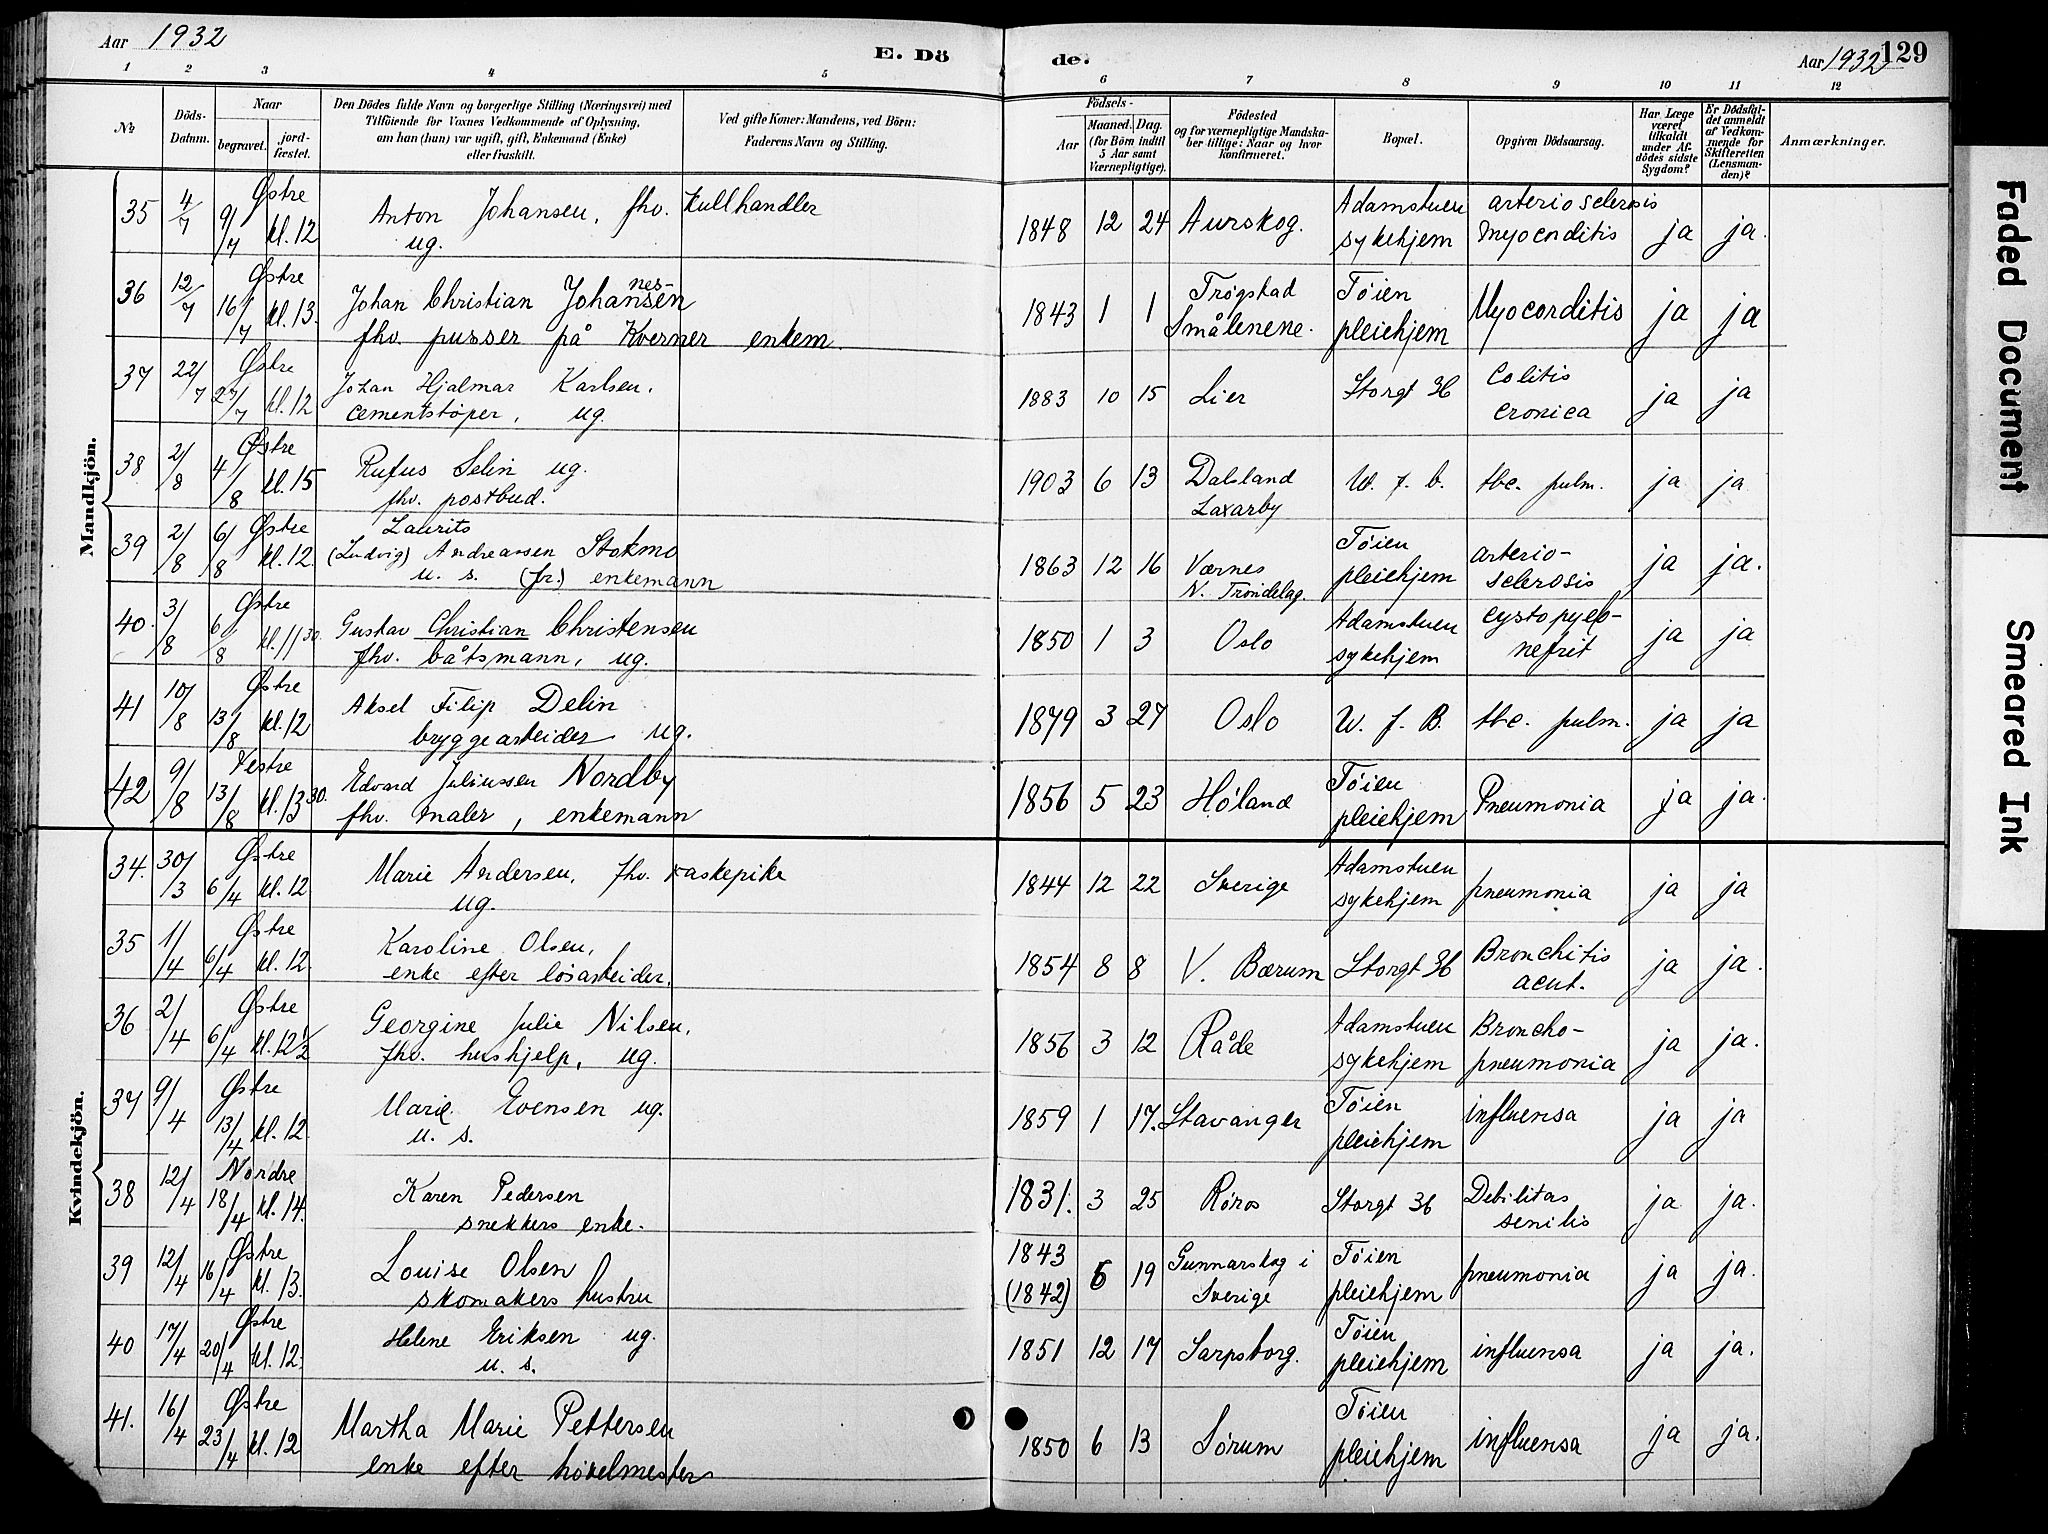 Aar 1932
E. Dö
de.
Aar 1932
129
1 2 3 4 5 6 7 8 9 10 11 12
№
Döds-Datum.
Naar
begravet.
jordfæstet.
Den Dödes fulde Navn og borgerlige Stilling (Næringsvei) med
Tilföiende for Voxnes Vedkommende af Oplysning,
om han (hun) var ugift, gift, Enkemand (Enke)
eller fraskilt.
Ved gifte Koner: Mandens, ved Börn:
Faderens Navn og Stilling.
Födsels-
Aar
Maaned.
Dag.
(for Börn indtil
5 Aar samt
Værnepligtige).
Födested
og for værnepligtige Mandska-
ber tillige: Naar og hvor
konfirmeret.
Bopæl.
Opgiven Dödsaarsag.
Har Læge
været
tilkaldt
under Af-
dödes sidste
Sygdom?
Er Dödsfal-
det anmeldt
af Vedkom-
mende for
Skifteretten
(Lensman-
den)?
Anmærkninger.
Mandkjön.
35 4/7 9/7 Østre kl. 12 Anton Johansen, fhv. kullhandler
ug.
1848 12 24 Aurskog. Adamstuen
sykehjem arteriosclerosis
myocorditis ja ja.
36 12/7 16/7 Østre kl. 13. Johan Christian Johansen
nes-
fhv. pusser på Kverner enkem.
1843 1 1 Trøgstad
Smålenene. Tøien
pleiehjem Myocorditis ja ja
37 22/7 27/7 Østre kl. 12 Johan Hjalmar Karlsen,
cementstøper, ug.
1883 10 15 Lier Storgt 36 Colitis
cronica ja ja
38 2/8 4/8 Østre kl. 15 Rufus Selin ug.
fhv. postbud.
1903 6 13 Dalsland
Laxarby W. f. b. tbc. pulm. ja ja
39 2/8 6/8 Østre kl. 12. Laurits
(Ludvig) Andreassen Stokmo
u. s. (fr.) enkemann
1863 12 16 Værnes
N. Trøndelag. Tøien
pleiehjem arterio-
sclerosis ja ja.
40. 3/8 6/8 Østre kl. 11 30. Gustav Christian Christensen
fhv. båtsmann, ug.
1850 1 3 Oslo Adamstuen
sykehjem cystopyelo-
nefrit ja ja
41 10/8 13/8 Østre kl. 12 Aksel Filip Delin
bryggearbeider ug.
1879 3 27 Oslo W. f. B. tbc. pulm. ja ja
42 9/8 13/8 Vestre kl. 13 30. Edvard Juliussen Nordby
fhv. maler, enkemann
1856 5 23 Høland Tøien
pleiehjem Pneumonia ja ja.
Kvindekjön.
34. 30/3 6/4 Østre kl. 12 Marie Andersen, fhv. vaskepike
ug.
1844 12 22 Sverige Adamstuen
sykehjem pneumonia ja ja
35 1/4 6/4 Østre kl. 12. Karoline Olsen,
enke efter løsarbeider.
1854 8 8 V. Bærum Storgt 36 Bronchitis
acut. ja ja.
36 2/4 6/4 Østre kl. 12 1/2 Georgine Julie Nilsen,
fhv. hushjelp, ug.
1856 3 12 Råde Adamstuen
sykehjem Broncho-
pneumonia ja ja.
37 9/4 13/4 Østre kl. 12. Marie Evensen ug.
u. s.
1859 1 17. Stavanger Tøien
pleiehjem influensa ja ja
38 12/4 18/4 Nordre kl. 14. Karen Pedersen
snekkers enke.
1831. 3 25 Røros Storgt 36 Debilitas
senilis ja ja.
39 12/4 16/4 Østre kl. 13. Louise Olsen
skomakers hustru
1843
(1842) 6 19 Gunnarskog i
Sverige Tøien
pleiehjem pneumonia ja ja.
40 17/4 20/4 Østre kl. 12. Helene Eriksen ug.
u. s.
1851 12 17 Sarpsborg. Tøien
pleiehjem influensa ja ja.
41. 16/4 23/4 Østre kl. 12 Martha Marie Pettersen
enke efter høvelmester
1850 6 13 Sørum Tøien
pleiehjem influensa ja ja.
Faded Document
Smeared Ink